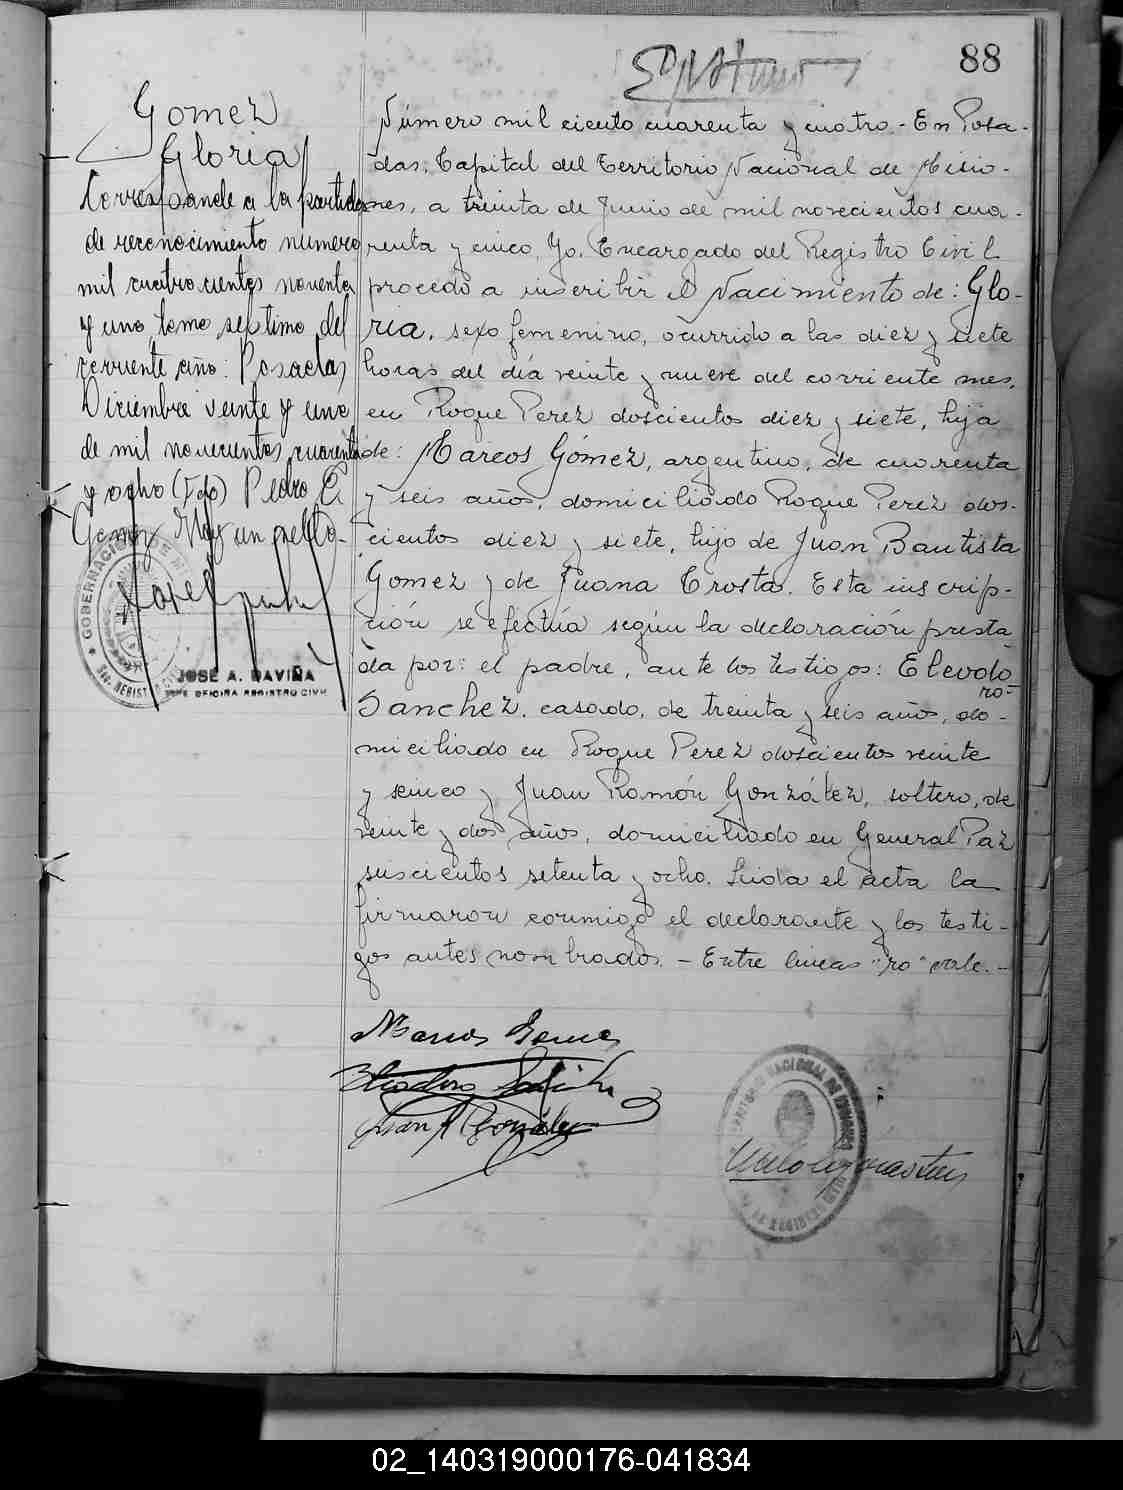 88
Gomez
Gloria
Corresponde a la partida
de reconocimiento numero
mil cuatrocientos noventa
y uno, tomo septimo del
corriente año: Posadas
Diciembre veinte y uno
de mil novecientos cuarenta
y ocho (Fdo) Pedro
GOBERNACION DE MI
JOSÉ A. DAVIÑA
JEFE OFICINA REGISTRO CIVIL
Número mil ciento cuarenta y cuatro.- En Posa-
das, Capital del Territorio Nacional de Misio-
nes, a treinta de Junio de mil novecientos cua-
renta y cinco, Yo, Encargado del Registro Civil
procedo a inscribir el Nacimiento de: Glo-
ria, sexo femenino, ocurrido a las diez y siete
horas del día veinte y nueve del corriente mes,
en Roque Perez doscientos diez y siete, hija
de: Marcos Gómez, argentino, de cuarenta
y seis años, domiciliado Roque Perez dos-
cientos diez y siete, hijo de Juan Bautista
Gomez y de Juana Trosta. Esta inscrip-
ción se efectúa según la declaración presta
da por: el padre, ante los testigos: Elevodo
ro-
Sanchez, casado, de treinta y seis años, do-
miciliado en Roque Perez doscientos veinte
y seinco y Juan Ramón González, soltero, de
veinte y dos años, domiciliado en General Paz
suscientos setenta y ocho. Leida el acta la
firmaron conmigo el declarante y los testi-
gos antes nombrados. - Entre lineas "ro" vale.-
Marcos Gomez
Juan R González
TERRITORIO NACIONAL DE MISIONES
02_140319000176-041834